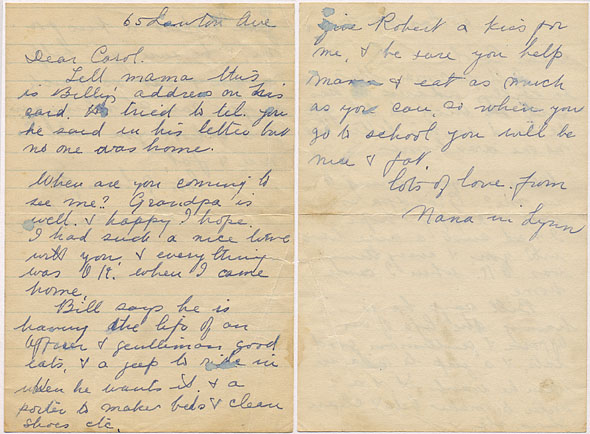 65 Lawton Ave
Dear Carol.
Tell mama this
is Billy's address on his
card. He tried to tel. you
he said in his letter but
no one was home.
When are you coming to
see me? Grandpa is
well. & happy I hope.
I had such a nice time
with you, & everything
was O.K. when I came
home.
Bill says he is
having the life of an
officer & gentleman, good
eats, & a jeep to ride in
when he wants it. & a
porter to make beds & clean
shoes etc.
Give Robert a kiss for
me, & be sure you help
mama & eat as much
as you can, so when you
go to school you will be
nice & fat.
lots of love. from
Nana in Lynn